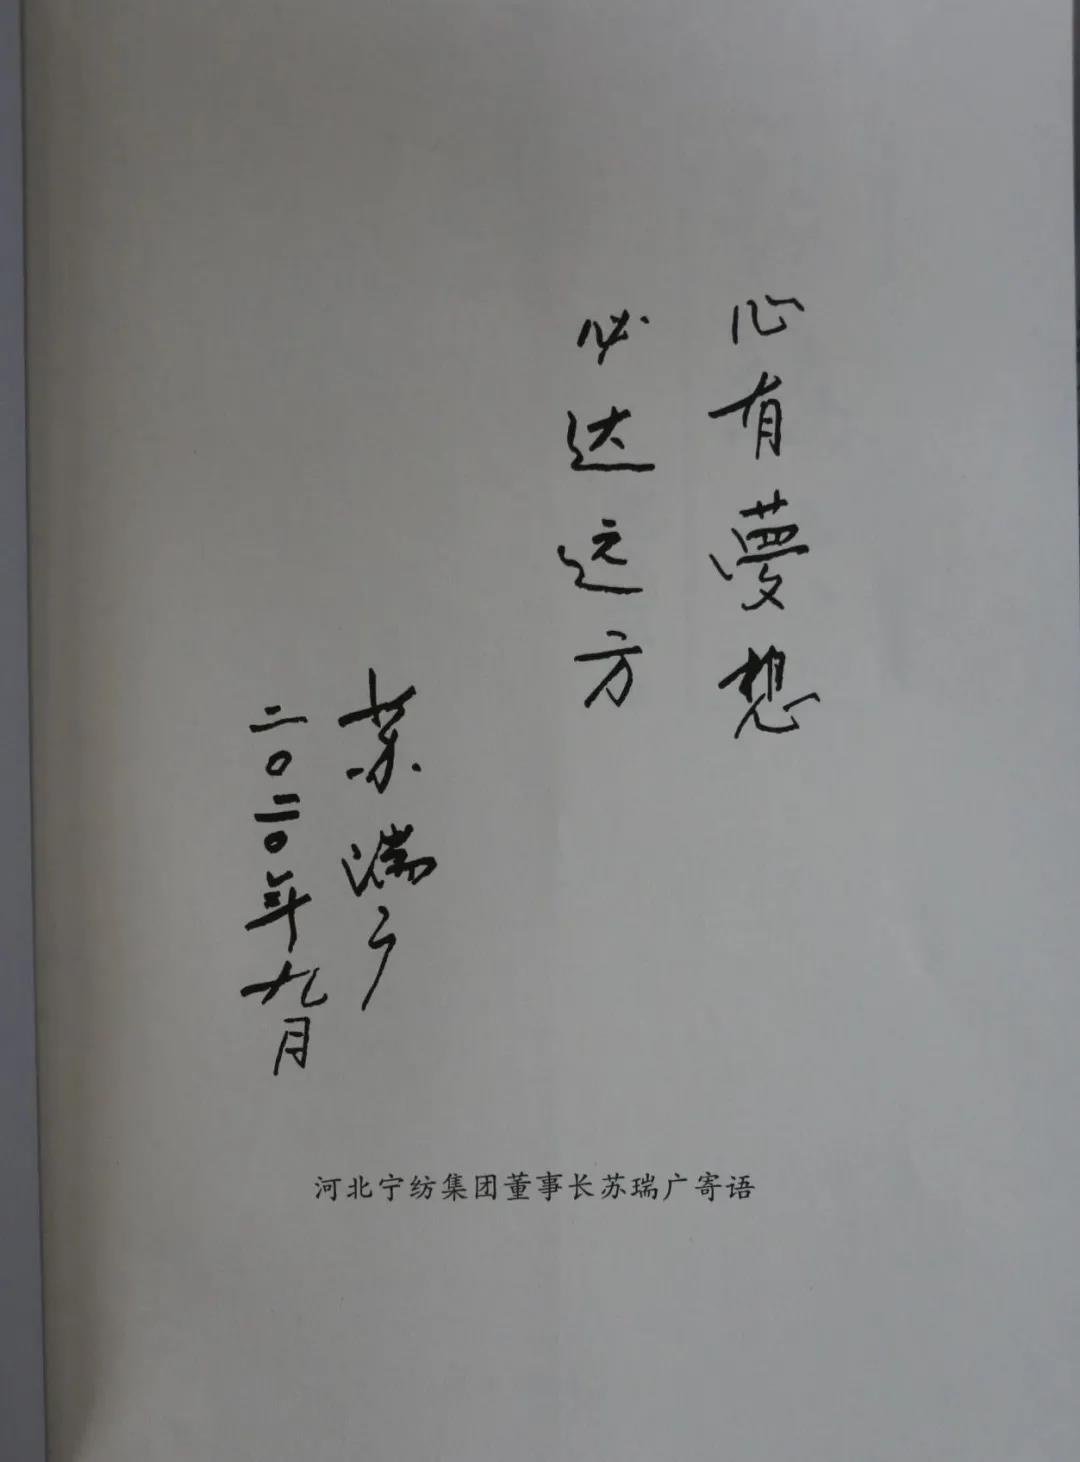 心有夢想
必达远方
苏瑞广
二〇二〇年九月
河北宁纺集团董事长苏瑞广寄语